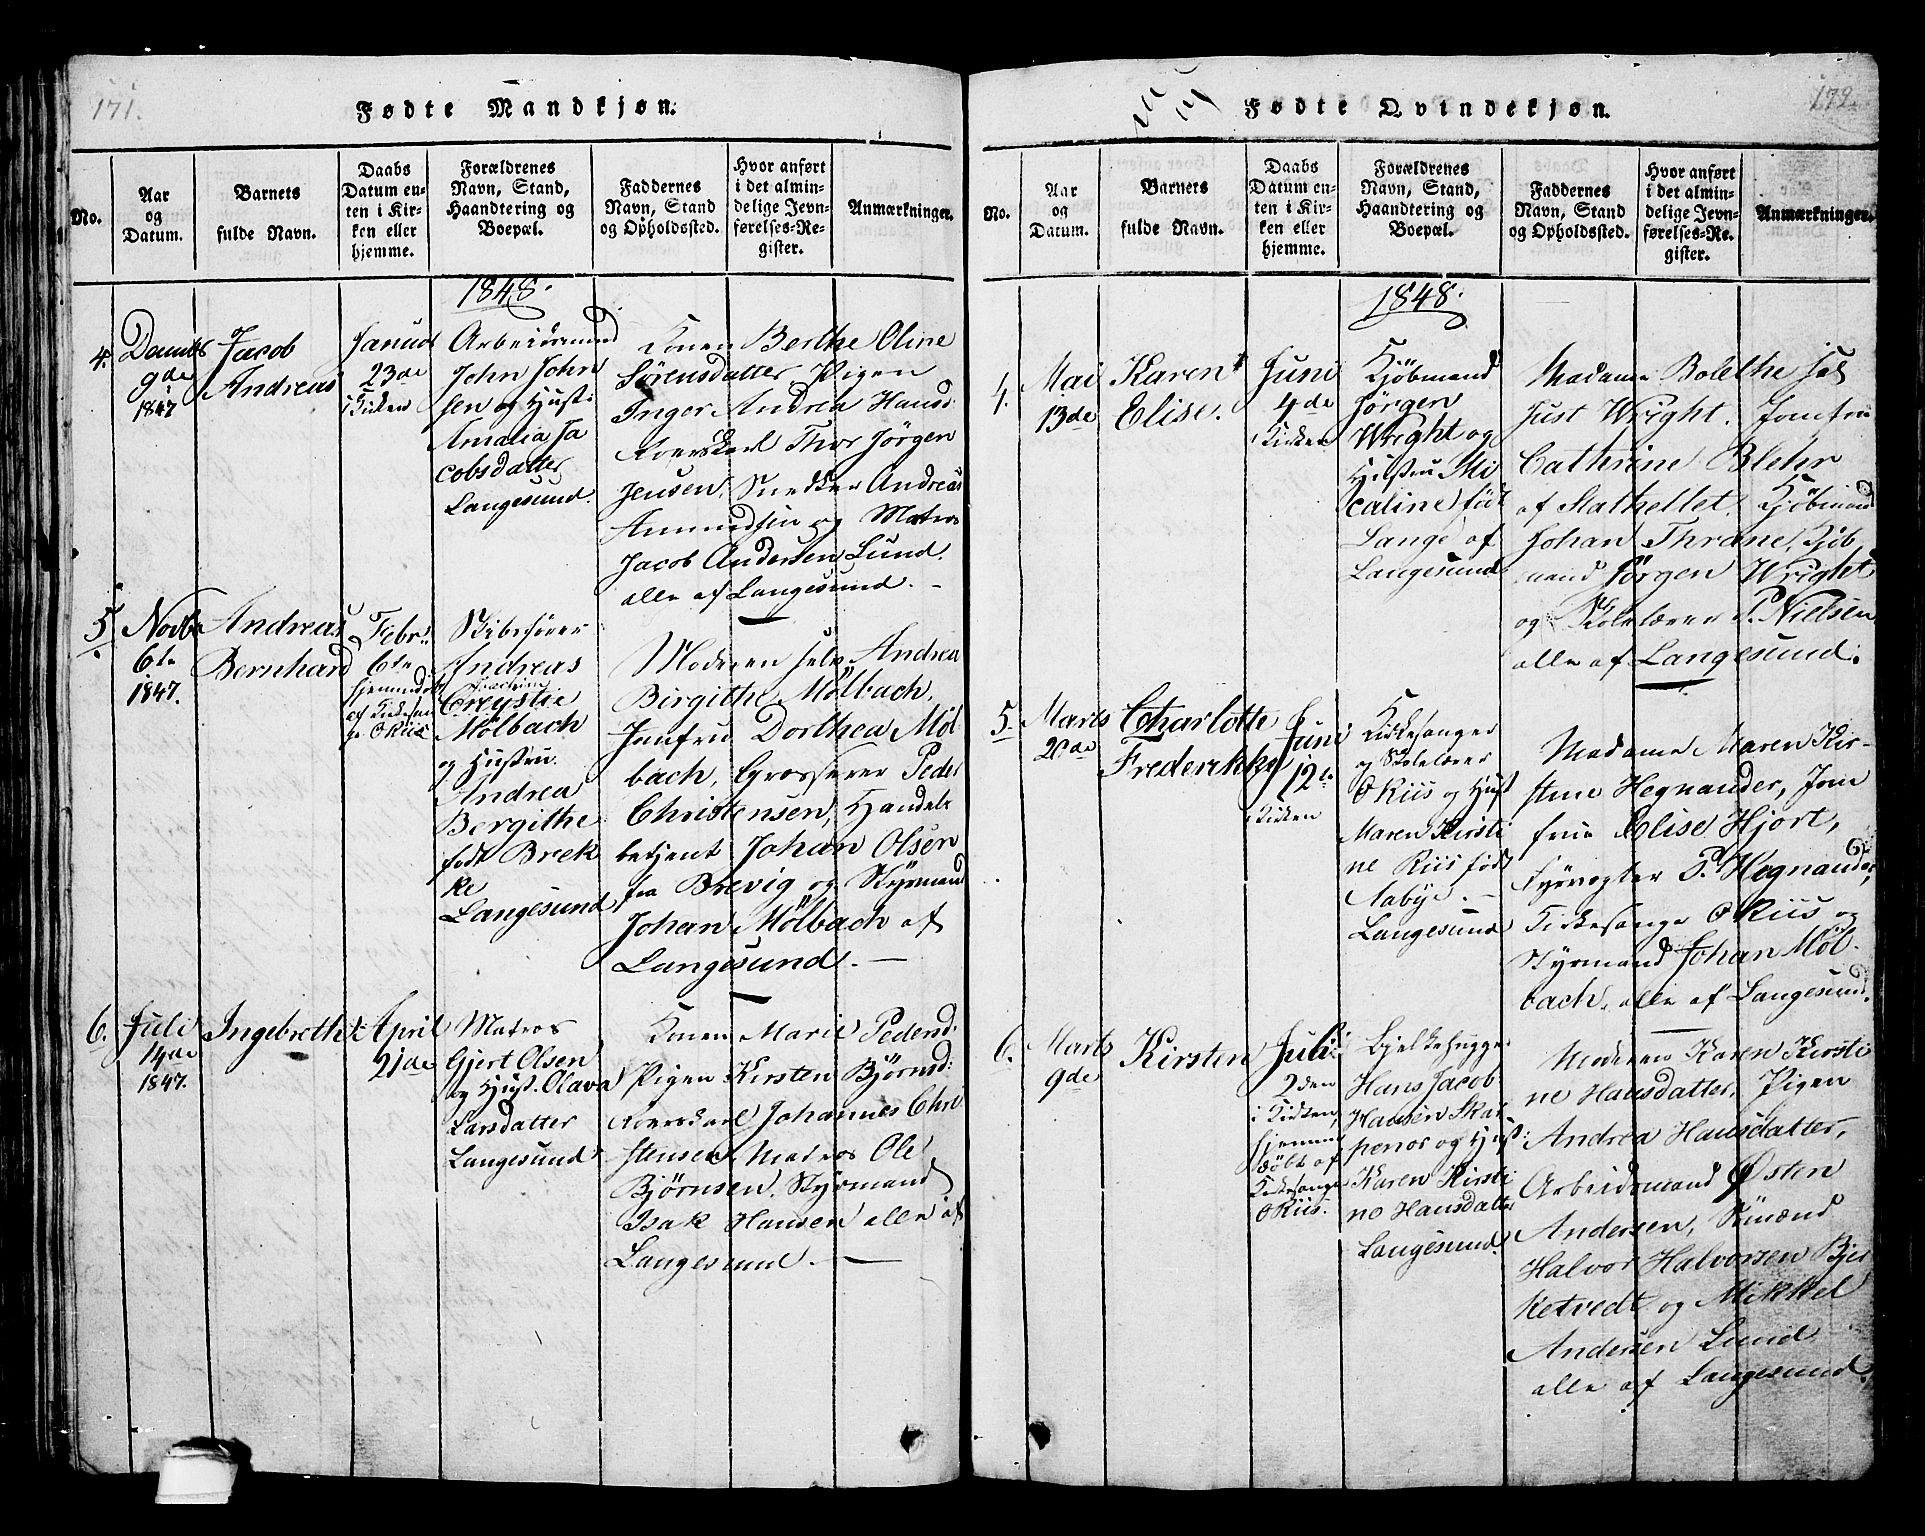 171.
Fødte Mandkjøn.
No.
Aar
og
Datum.
Barnets
fulde Navn.
Daabs
Datum en-
ten i Kir-
ken eller
hjemme.
Forældrenes
Navn, Stand,
Haandtering og
Boepæl.
Faddernes
Navn, Stand
og Opholdssted.
Hvor anført
i det almin-
delige Jevn-
førelses-Re-
gister.
Anmærkninger.
1848.
4.
9de
1847
Jacob
Andreas
23de
i Kirken
Arbeidsmand
John John
sen og Hust:
Amalia Ja
cobsdatter
Langesund.
Konen Berthe Oline
Sörensdatter, Pigen
Inger Andrea Hansd:
Thor Jörgen
Jensen, Snedker Andreas
Amundsen og Matros
Jacob Andersen Lund.
alle af Langesund. –
5.
Novbr
6te
1847.
Andreas
Bernhard
Febr:
6te
hjemmedøbt
af Kirkesan
ger O Riis
Skibsfører
Andreas
Joachim
Chrystie
Mölbach
og Hustru
Andrea
Bergithe
født Brek
ke
Langesund
Moderen selv Andrea
Birgithe Mölbach,
Jomfru Dorthea Möl
bach, Grosserer Peder
Christensen, Handels
betjent Johan Olsen
fra Brevig og Styrmand
Johan Mölbach af
Langesund. –
6.
Juli
14de
1847.
Ingebreth
April
21de
Matros
Gjert Olsen
og Hust. Olava
Larsdatter
Langesund
Konen Marie Pedersd:
Pigen Kirsten Björnsd:
Johannes Chri
stensen, Matros Ole
Björnsen, Styrmand
Isak Hansen alle af
Langesund. –
172.
Fødte Qvindekjøn.
No.
Aar
og
Datum.
Barnets
fulde Navn.
Daabs
Datum en-
ten i Kir-
ken eller
hjemme.
Forældrenes
Navn, Stand,
Haandtering og
Boepæl.
Faddernes
Navn, Stand
og Opholdssted.
Hvor anført
i det almin-
delige Jevn-
førelses-Re-
gister.
Anmærkninger.
1848.
4.
Mai
13de
Karen
Elise.
Juni
4de
i Kirken
Kjöbmand
Jörgen
Wright og
Hustru Mi
caline født
Lange af
Langesund
Madame Bolethe
Just Wright. Jomfru
Cathrine Blehr
af Stathellet, Kjöbmand
Johan Thrane, Kjöb
mand Jörgen Wright
og Skolelærer P. Nielsen
alle af Langesund.
5.
Marts
Charlotte
Frederikke
Juni
12te
i Kirken
Kirkesanger
og Skolelærer
O Riis og Hust
Maren Kirsti
ne Riis født
Aabye. –
Langesund
Madame Maren Kir-
stine Hegnander, Jom
frue Elise Hjort,
Fyrvogter P. Hegnander,
Kirkesanger O Riis og
Styrmand Johan Möl-
bach, alle af Langesund.
6.
Marts
9de
Kirsten
Juli
2den
i Kirken,
hjemme
døbt af
Kirkesanger
O Riis.
Bjelkehugger
Hans Jacob
Hansen Skar
penos og Hust:
Karen Kirsti
ne Hansdatter
Langesund.
Moderen Karen Kirsti
ne Hansdatter, Pigen
Andrea Hansdatter,
Arbeidsmand Østen
Andersen, Sömænd
Halvor Halvorsen Bjer
ketvedt og Mikkel
Andersen Lund
alle af Langesund.